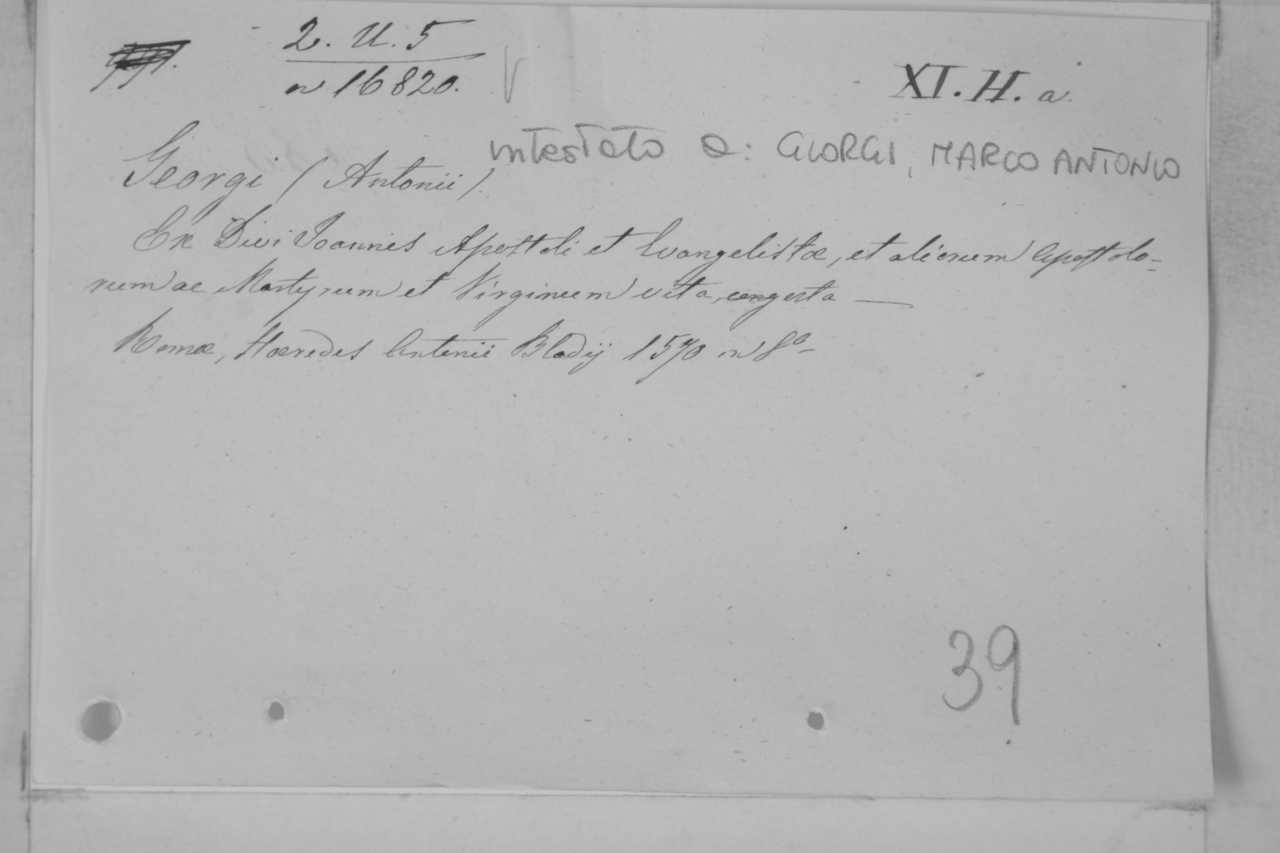 2. U. 5
n 16820.
XI. H. a.
intestato a: GIORGI, MARCO ANTONIO
Georgi (Antonii).
Ex Divi Joannis Apostoli et Evangelistæ, et aliorum Apostolo-
rum ac Martyrum et Virginum vita, congesta —
Romæ, Haeredes Antonii Bladij 1570 in 8º-
39